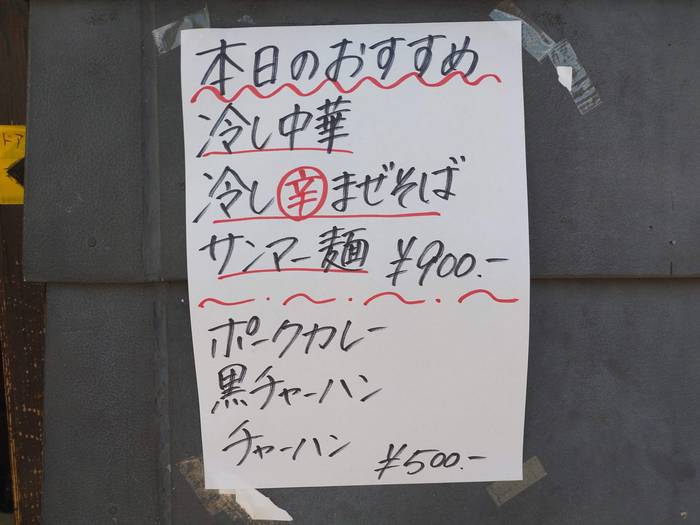 本日のおすすめ
冷し中華
冷し辛まぜそば
サンマー麺 ¥900.-
ポークカレー
黒チャーハン
チャーハン ¥500.-
ドア